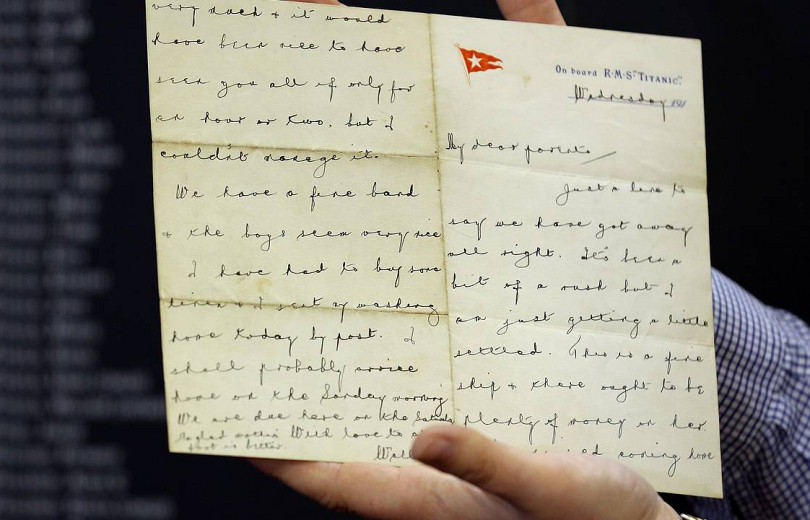 On board R.M.S. "TITANIC".
Wednesday 191
My dear parents
Just a line to
say we have got away
all right. It's been a
bit of a rush but I
am just getting a little
settled. This is a fine
ship & there ought to be
plenty of money on her.
coming home
very much & it would
have been nice to have
seen you all if only for
an hour or two. but I
couldn't manage it.
We have a fine band
& the boys seem very nice
I have had to buy some
linen & I sent my washing
home today by post. I
shall probably arrive
home on the Sunday morning
We are due here on the
mother's Will love to
foot is better.